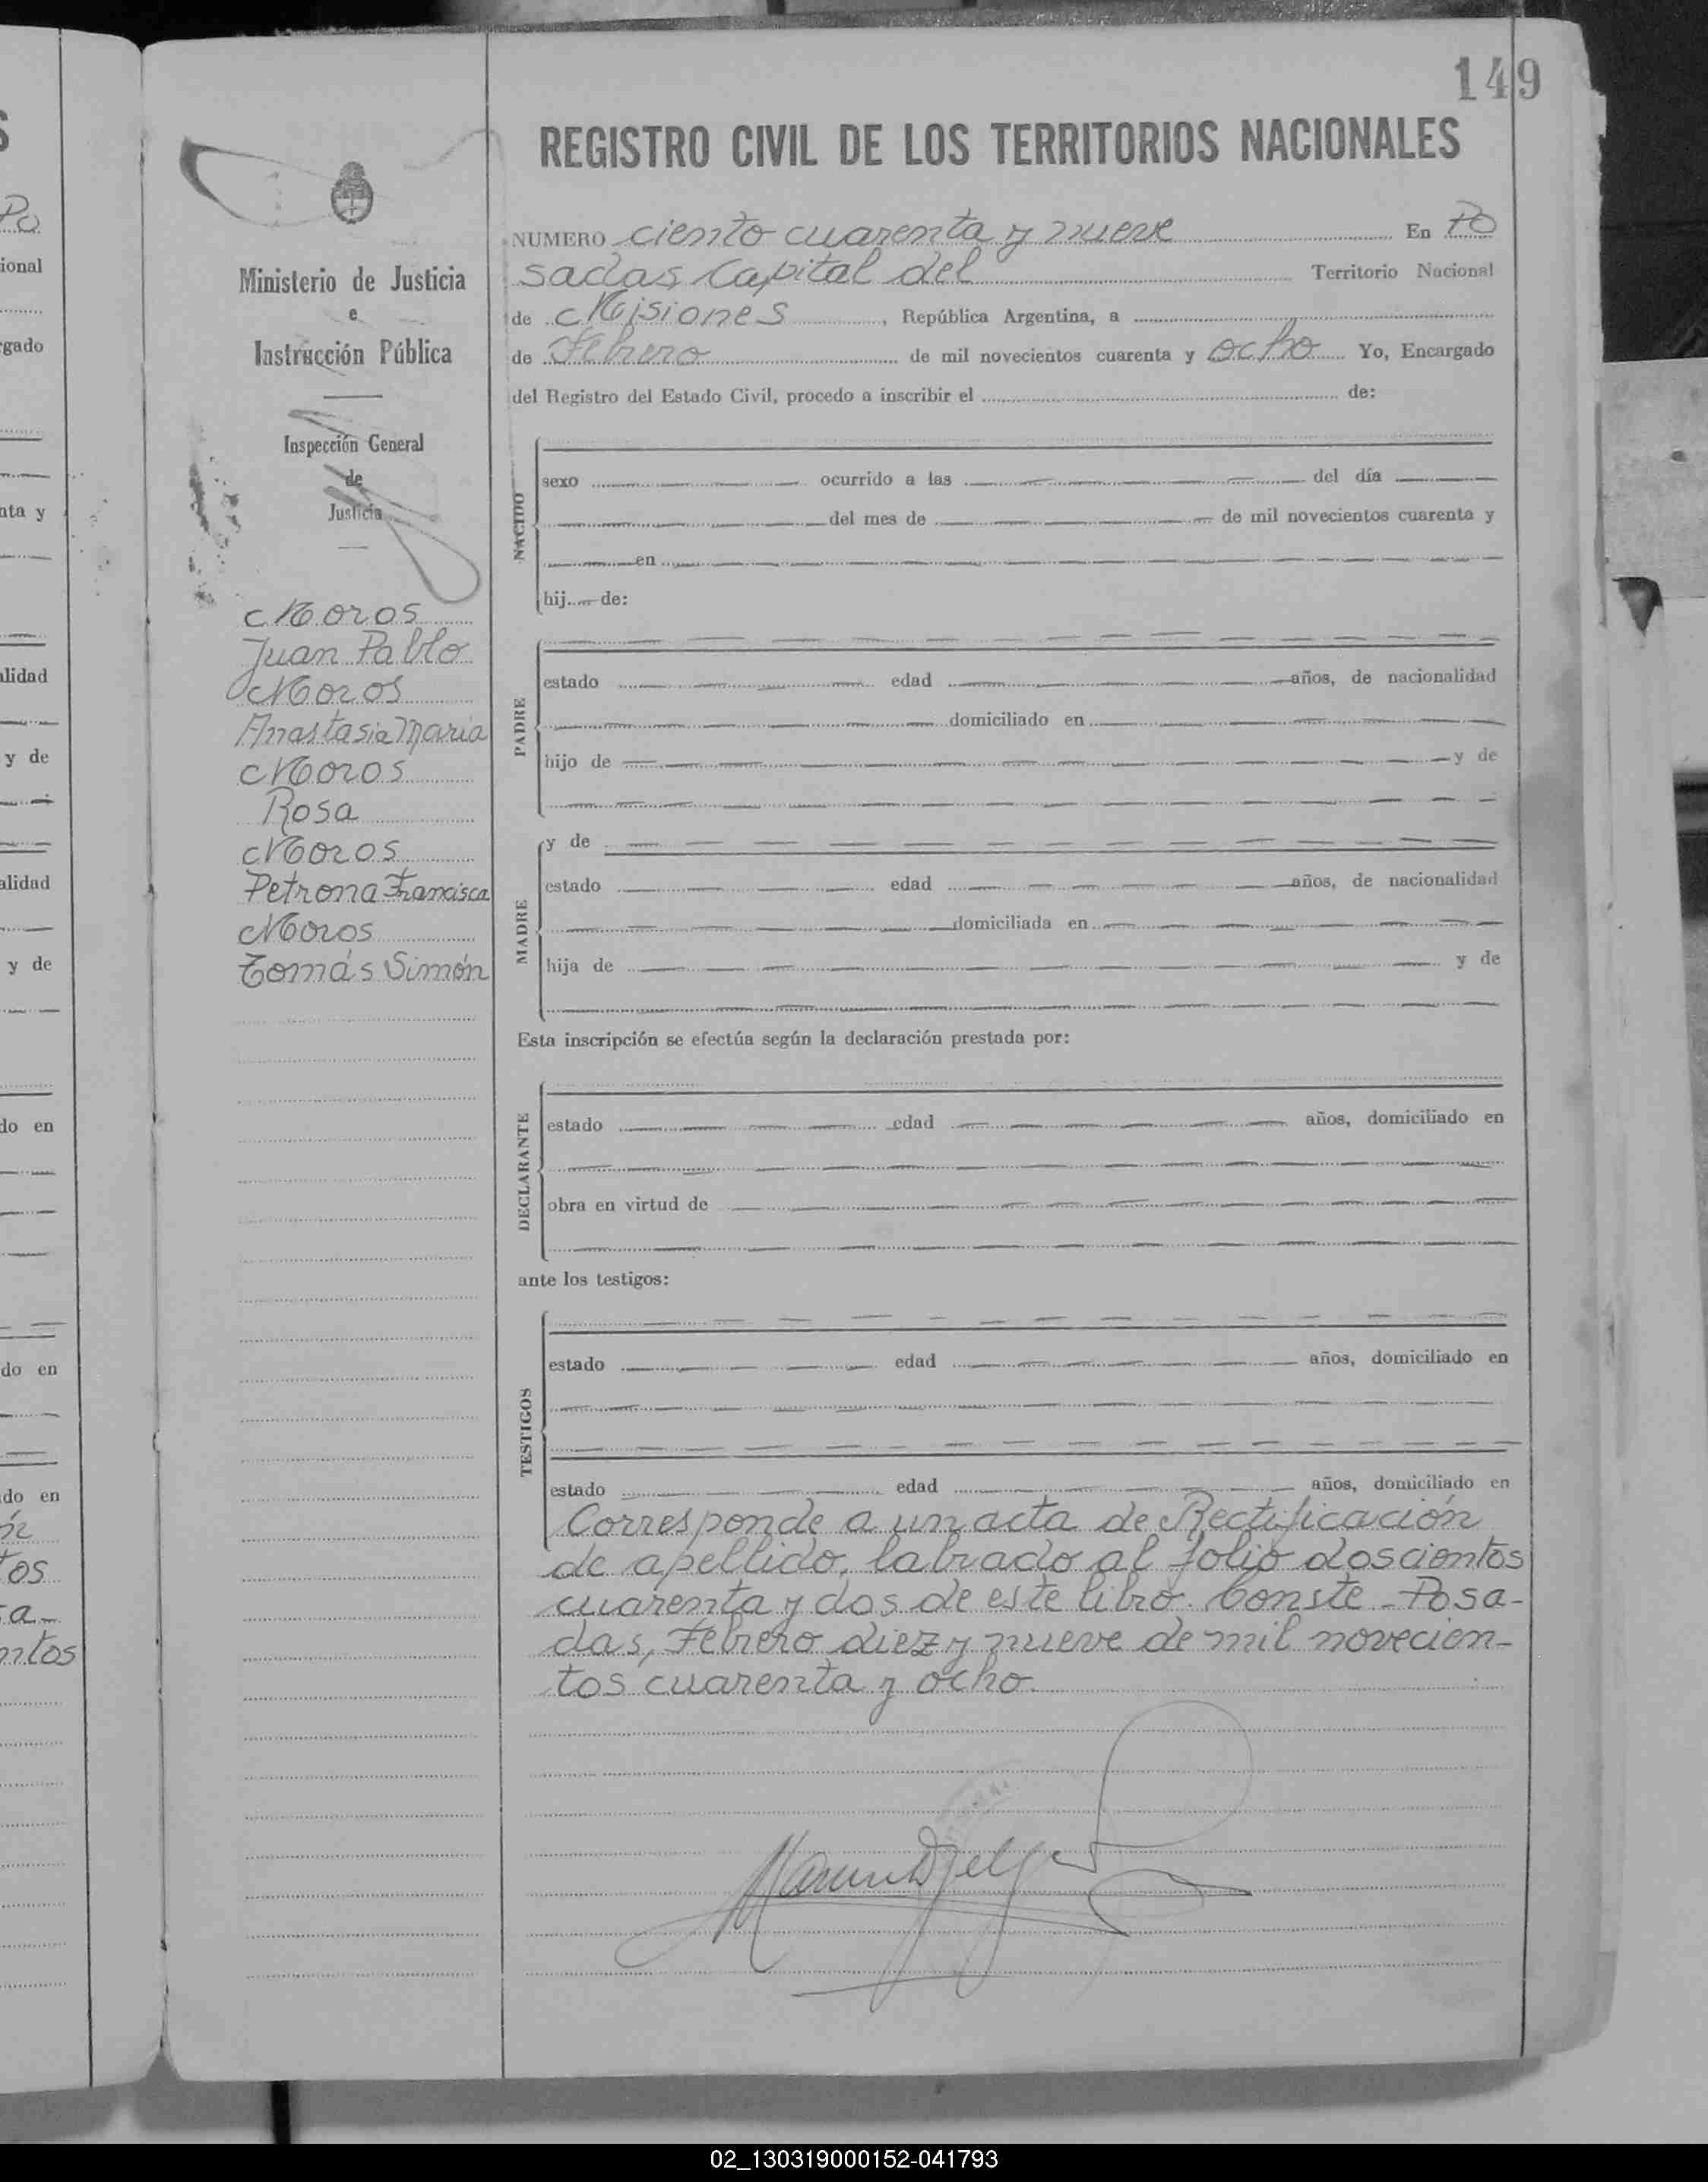 149
REGISTRO CIVIL DE LOS TERRITORIOS NACIONALES
Ministerio de Justicia
e
Instrucción Pública
Inspección General
de
Justicia
Moros
Juan Pablo
Moros
Anastasia Maria
Moros
Rosa
Moros
Petrona Francisca
Moros
Tomás Simón
NUMERO ciento cuarenta y nueve En Po
sadas Capital del Territorio Nacional
de Misiones, República Argentina, a
de Febrero de mil novecientos cuarenta y ocho Yo, Encargado
del Registro del Estado Civil, procedo a inscribir el de:
NACIDO
sexo ocurrido a las del día
del mes de de mil novecientos cuarenta y
en
hij de:
PADRE
estado edad años, de nacionalidad
domiciliado en
hijo de y de
MADRE
y de
estado edad años, de nacionalidad
domiciliada en
hija de y de
Esta inscripción se efectúa según la declaración prestada por:
DECLARANTE
estado edad años, domiciliado en
obra en virtud de
ante los testigos:
TESTIGOS
estado edad años, domiciliado en
estado edad años, domiciliado en
Corresponde a un acta de Rectificación
de apellido, labrado al folio doscientos
cuarenta y dos de este libro. Conste - Posa-
das, Febrero diez y nueve de mil novecien-
tos cuarenta y ocho.
02_130319000152-041793